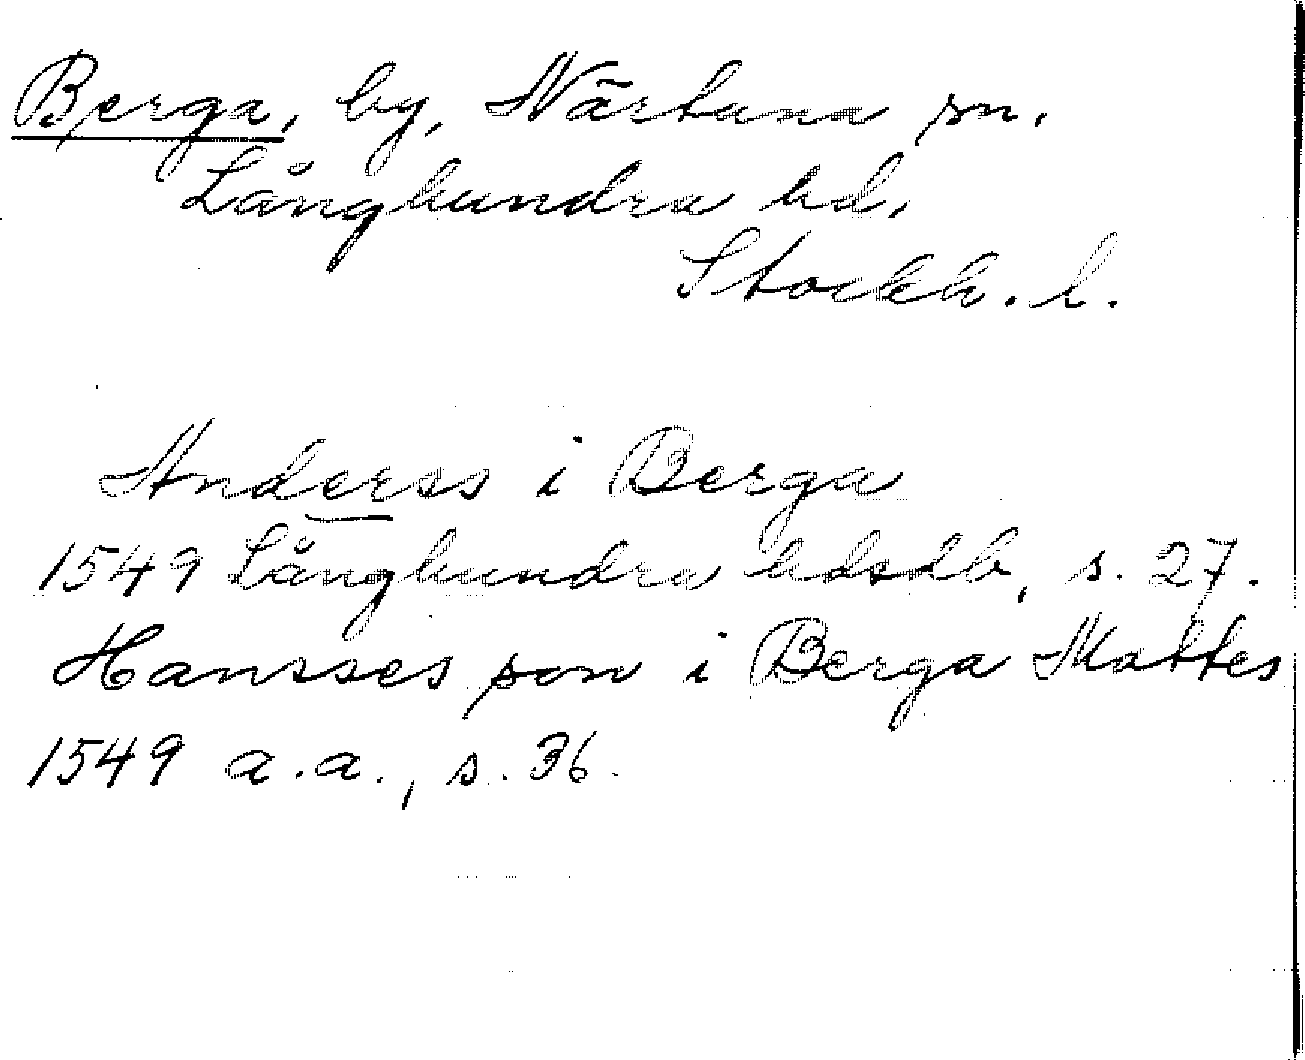 Berga, by, Närtuna sn.
Långhundra hd.
Stockh. l.
Anderss i Berga
1549 Långhundra hdsdb, s. 27.
Hansses son i Berga Mattes
1549 a.a., s. 36.